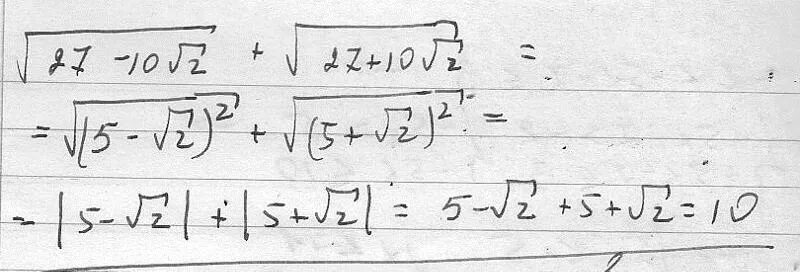 √(27 - 10√2) + √(27 + 10√2) =
= √((5 - √2)²) + √((5 + √2)²) =
= |5 - √2| + |5 + √2| = 5 - √2 + 5 + √2 = 10